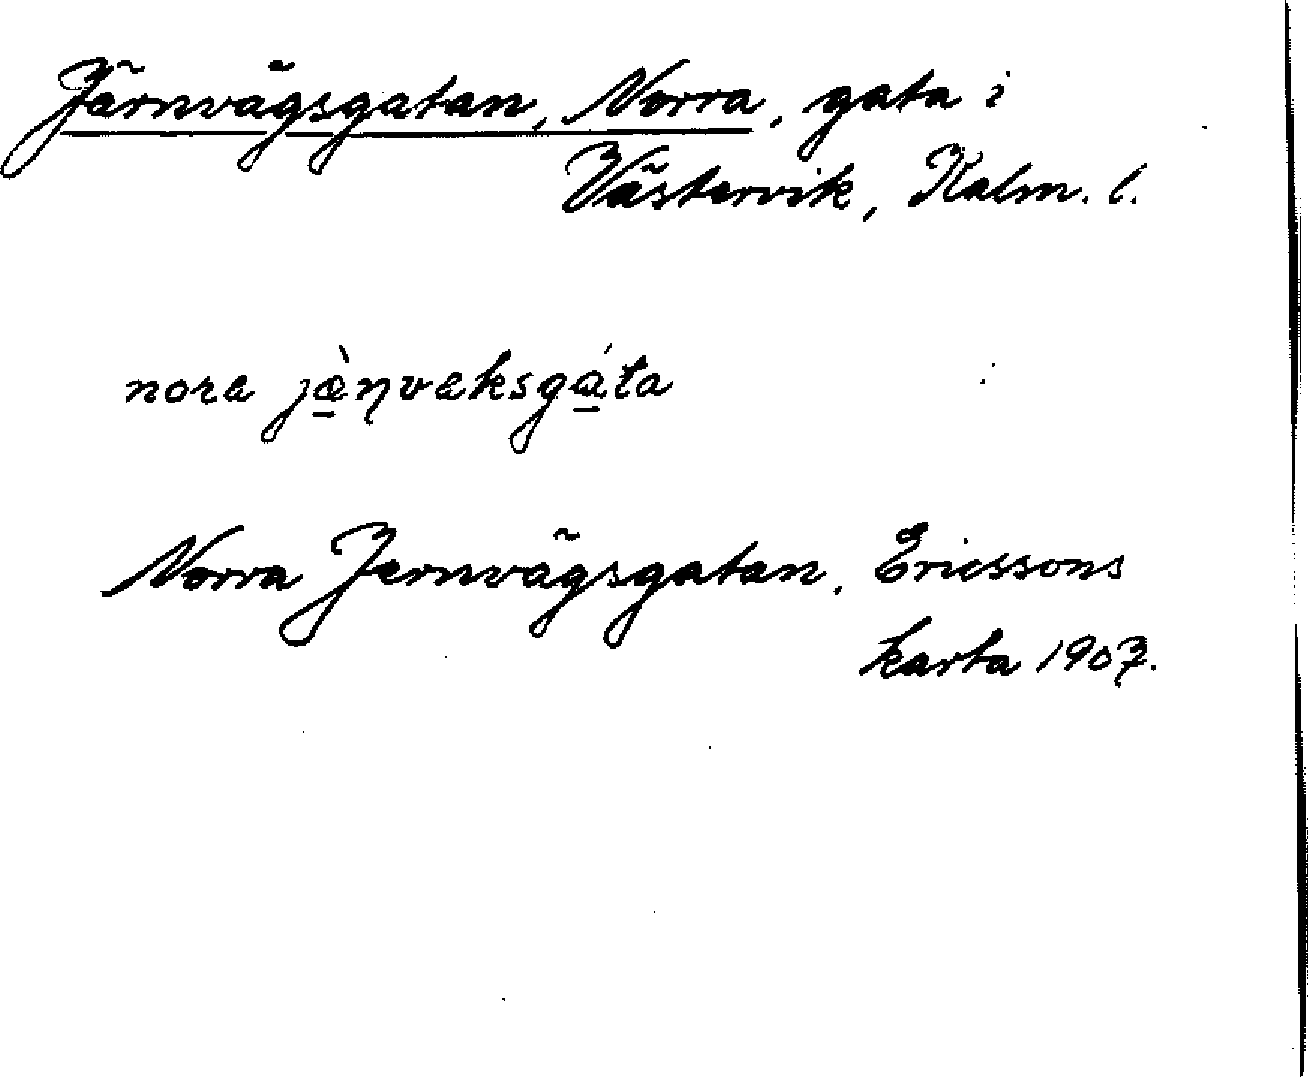 Järnvägsgatan, Norra, gata i
Västervik, Kalm. l.
nora jæ̠̀ɳvaksgá̠ta
Norra Jernvägsgatan, Ericssons
karta 1907.